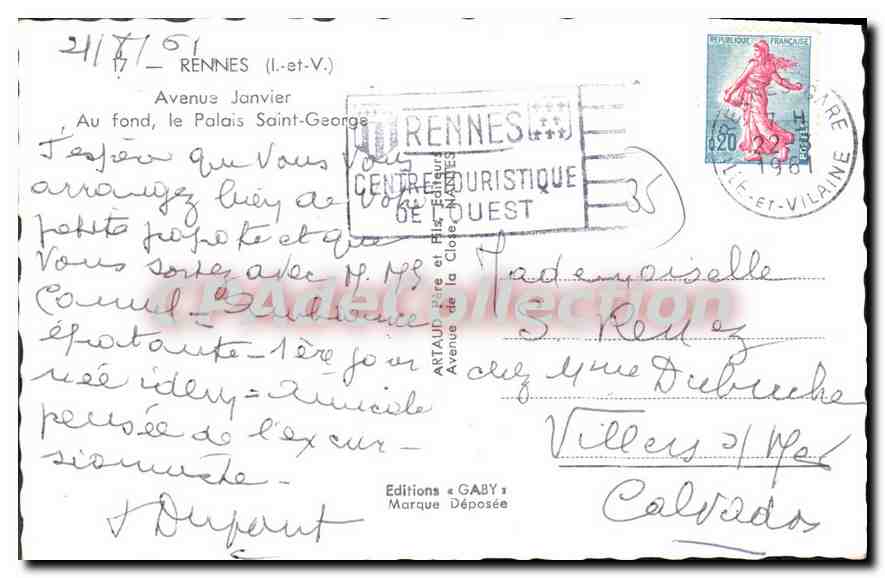 17 — RENNES (I.-et-V.)
Avenue Janvier
Au fond, le Palais Saint-George
J'espère que vous vous
arrangez bien de votre
petite popote et que
vous sortez avec M. Mme
Ambiance
épatante - 1ère jour
née idem = Amicale
pensée de l'excur-
sionniste -
Dupont
Editions « GABY »
Marque Déposée
ARTAUD Père et Fils, Editeurs
Avenue de la Close, NANTES
RENNES
CENTRE TOURISTIQUE
DE L'OUEST
REPUBLIQUE FRANÇAISE
0,20
POSTES
RENNES GARE
22
1961
ILLE-ET-VILAINE
35
Mademoiselle
S. Renez
chez Mme Dubuche
Villers s/ Mer
Calvados
CPAdeCollection